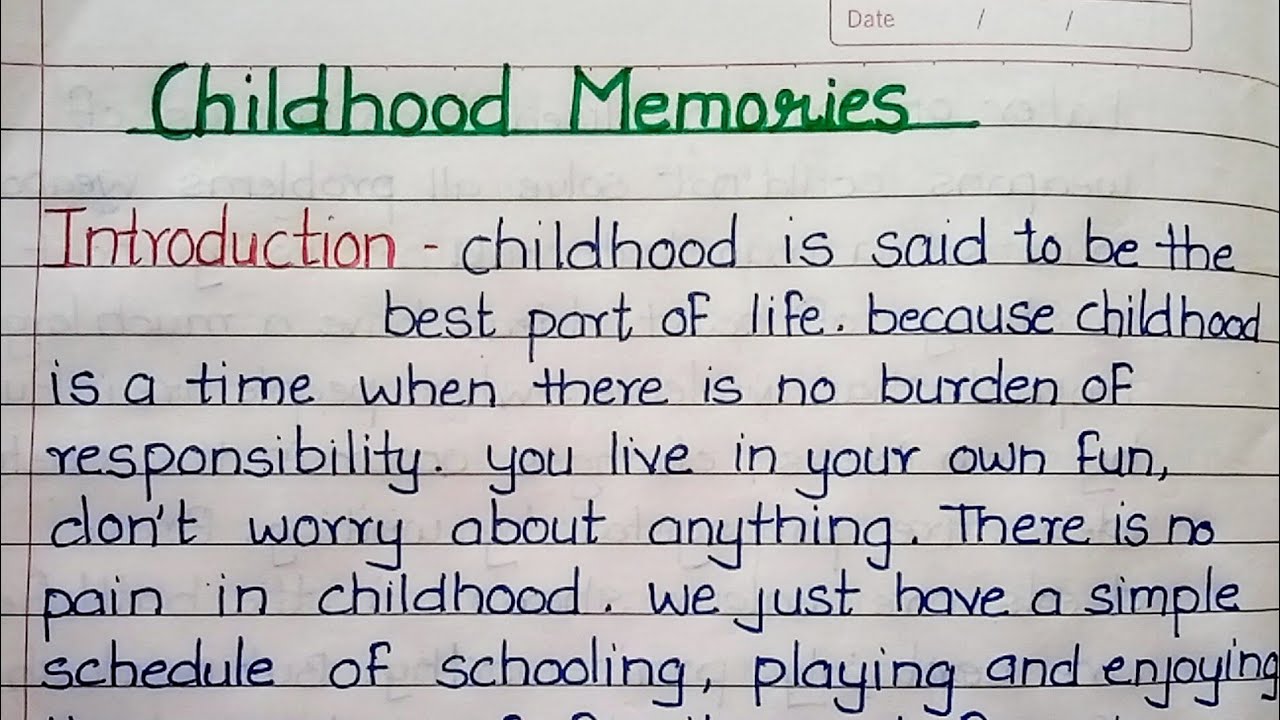 Date / /
Childhood Memories
Introduction - childhood is said to be the
best part of life. because childhood
is a time when there is no burden of
responsibility. you live in your own fun,
don't worry about anything. There is no
pain in childhood. we just have a simple
schedule of schooling, playing and enjoying